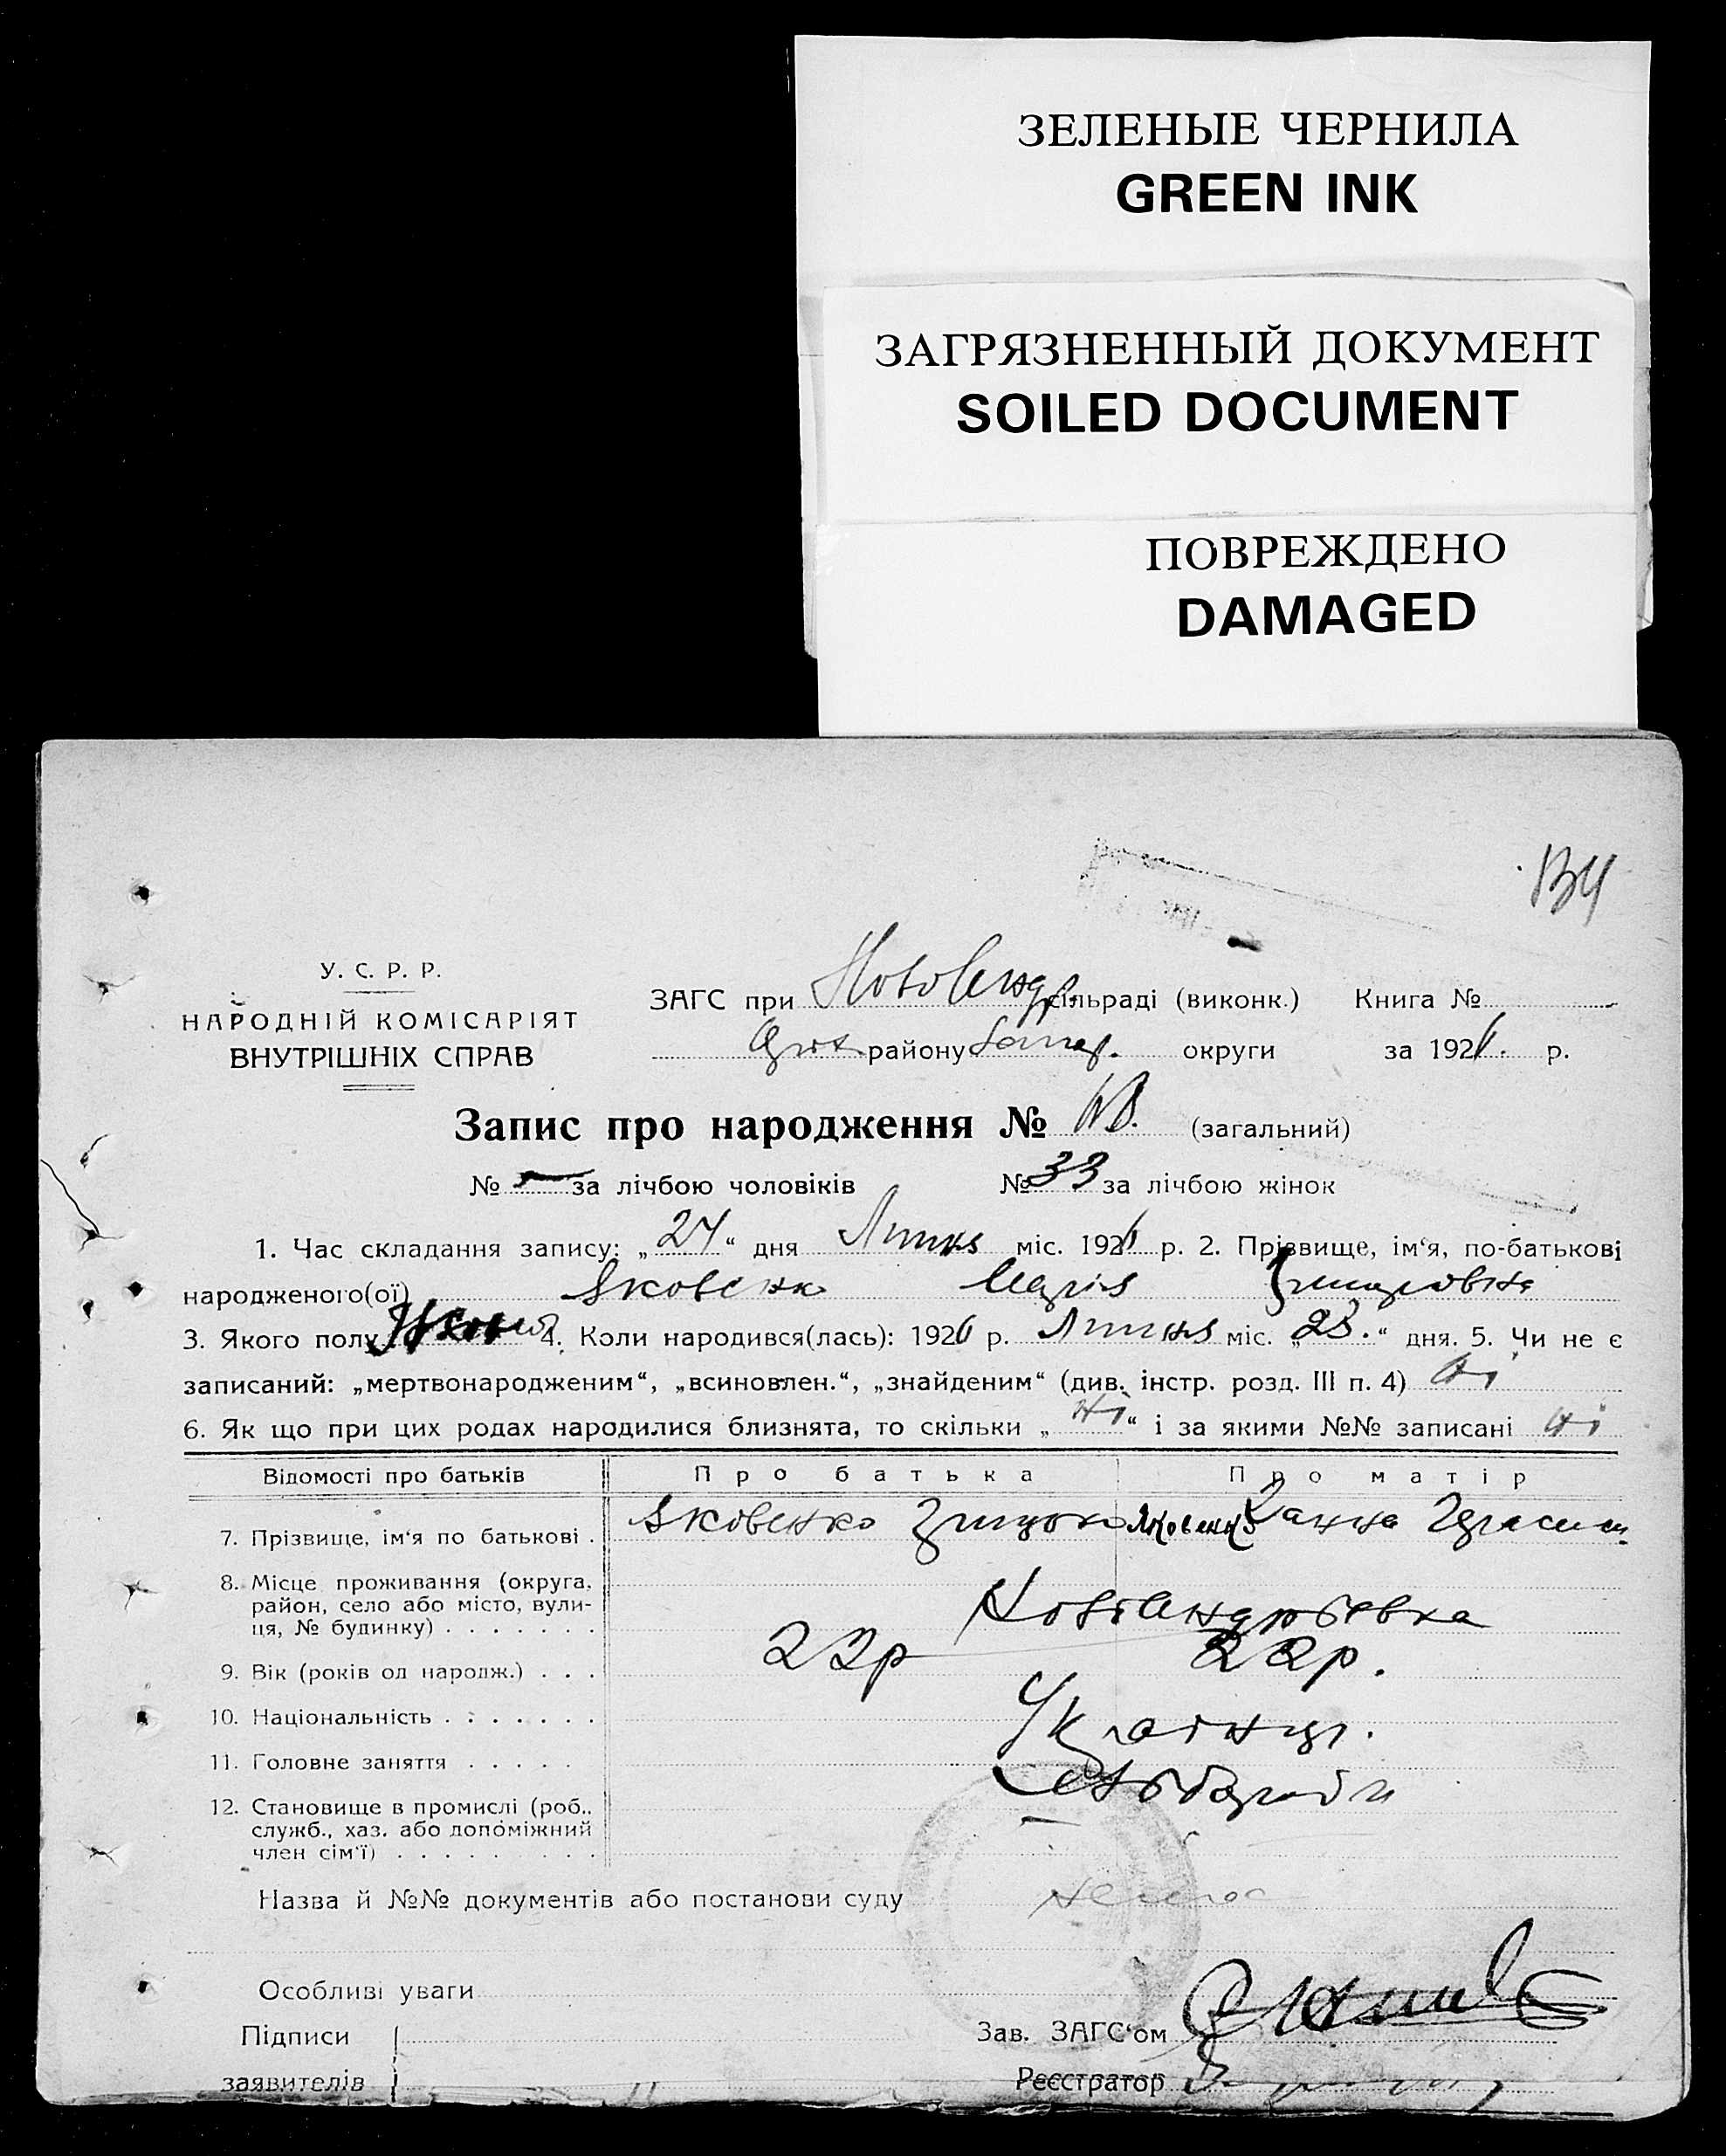 ЗЕЛЕНЫЕ ЧЕРНИЛА
GREEN INK
ЗАГРЯЗНЕННЫЙ ДОКУМЕНТ
SOILED DOCUMENT
ПОВРЕЖДЕНО
DAMAGED
134
У. С. Р. Р.
НАРОДНІЙ КОМІСАРІЯТ
ВНУТРІШНІХ СПРАВ
ЗАГС при сільраді (виконк.) Книга №
району округи за 1926. р.
Запис про народження № (загальний)
№ — за лічбою чоловіків № 33 за лічбою жінок
1. Час складання запису: „24“ дня Липня міс. 1926 р. 2. Прізвище, ім‘я, по-батькові
народженого(ої) Яковенко Марія
3. Якого полу 4. Коли народився(лась): 1926 р. Липня міс. „23.“ дня. 5. Чи не є
записаний: „мертвонародженим“, „всиновлен.“, „знайденим“ (див. інстр. розд. III п. 4) ні
6. Як що при цих родах народилися близнята, то скільки „ні“ і за якими №№ записані ні
Відомості про батьків Про батька Про матір
7. Прізвище, ім‘я по батькові . Яковенко Яковенко Ганна
8. Місце проживання (округа,
район, село або місто, вули-
ця, № будинку) . . . . . . . Новоандріевка
9. Вік (років од народж.) . . . 22р 22р.
10. Національність . . . . . . . Українці.
11. Головне заняття . . . . . хлібороби
12. Становище в промислі (роб.,
служб., хаз. або допоміжний
член сім‘ї) . . . . . . . . . —
Назва й №№ документів або постанови суду немає
Особливі уваги
Підписи
заявителів
Зав. ЗАГС‘ом
Реєстратор